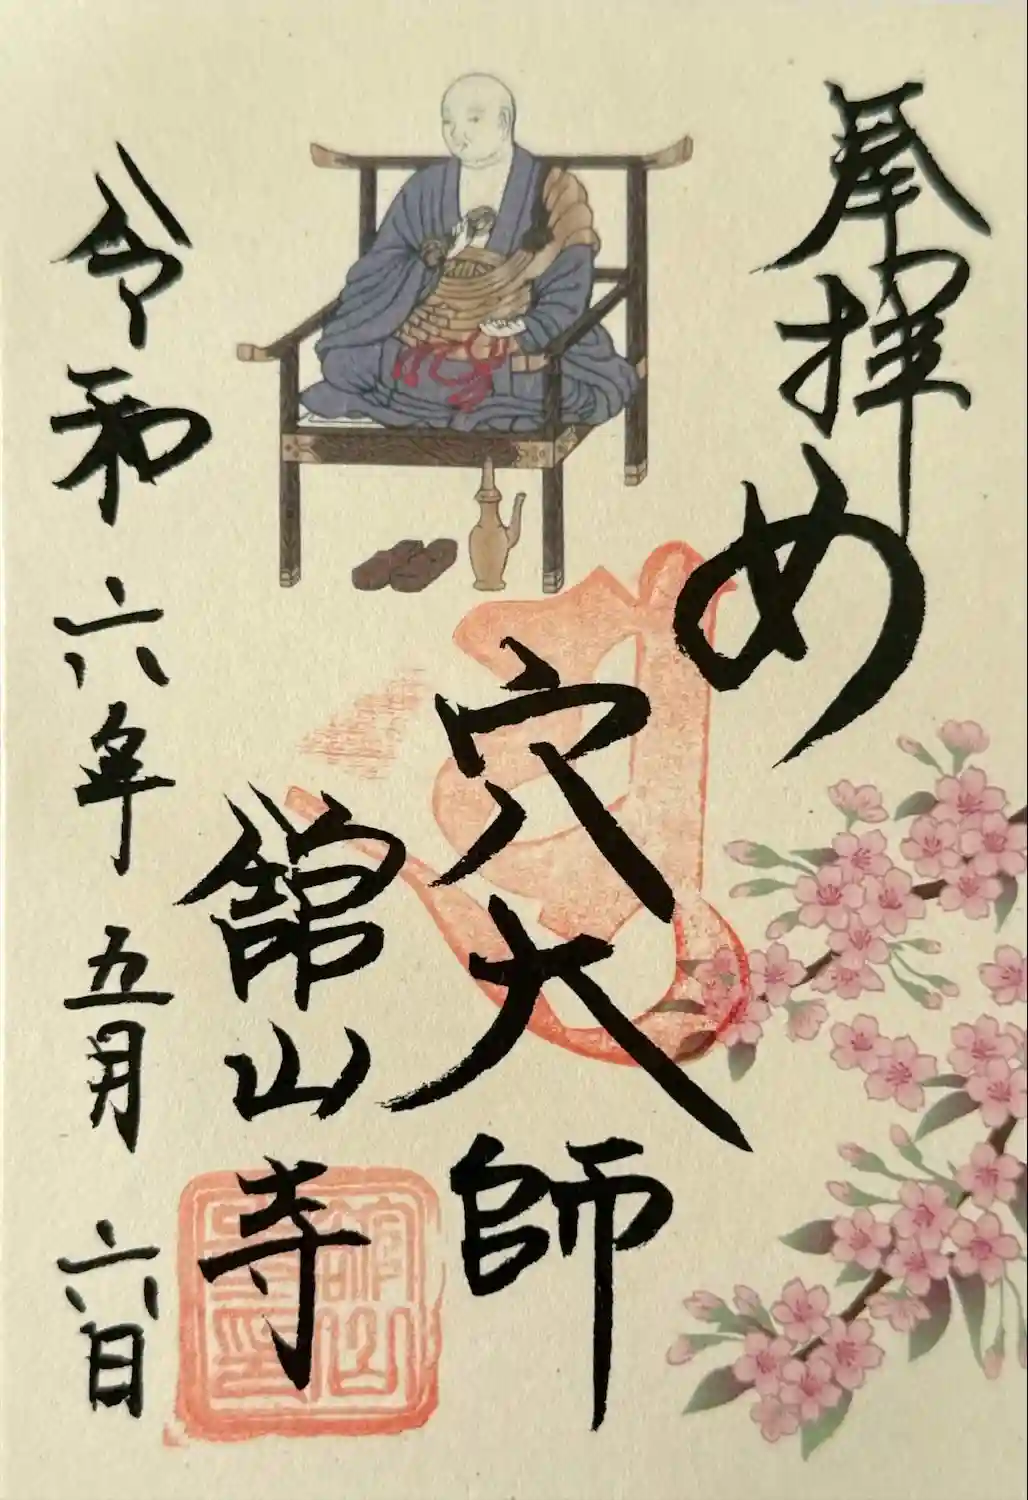 奉拝
め
穴大師
舘山寺
令和六年五月六日